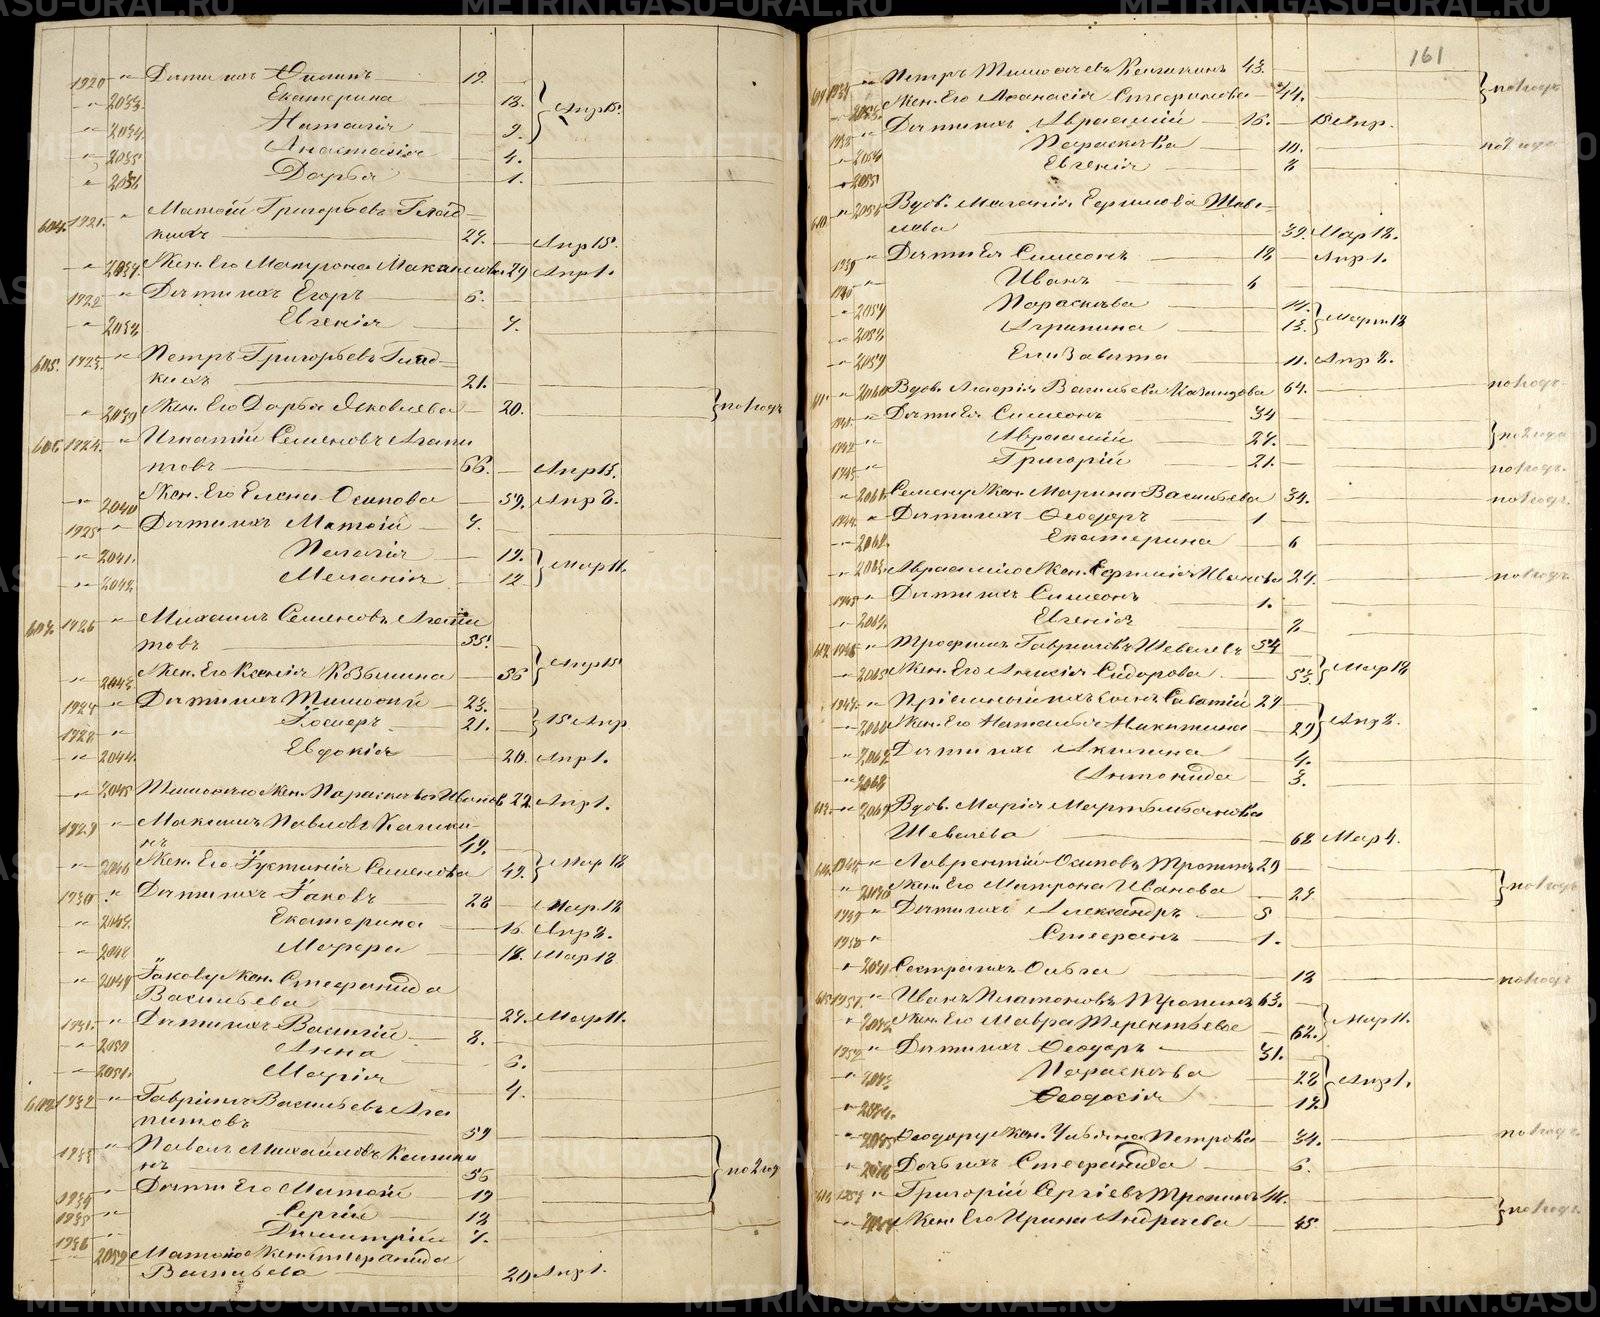 METRIKI.GASU-URAL.RU
161
1920 " Дѣти ихъ Филипъ 12.
" 2033. Екатерина 13.
" 2034. Наталія 9. } Апр 15.
" 2035 Анастасія 4.
" 2036 Дарья 1.
604. 1921. " Матѳій Григорьевъ Глад-
кихъ 27. Апр 15.
" 2037. Жен. Его Матрона Максимова 29 Апр 1.
1922 " Дѣти ихъ Егоръ 6.
" 2038 Евгенія 7.
605. 1923. " Петръ Григорьевъ Глад-
кихъ 21.
" 2039 Жен. Его Дарья Яковлева 20. } по 1 году
606. 1924. " Игнатій Семеновъ Агапи
товъ 66. Апр 15.
" 2040 Жен. Его Елена Осипова 59. Апр 8.
1925 " Дѣти ихъ Матѳій 7.
" 2041. Пелагія 19.
" 2042. Меланія 12 } Мар 11.
607. 1926 " Михаилъ Семеновъ Агапи
товъ 55.
" 2043 Жен. Его Ксенія Козьмина 56 } Апр 15
1927 " Дѣти ихъ Тимоѳій 23.
1928 " 21. } 15 Апр
" 2044. Евдокія 20. Апр 1.
" 2045 Тимоѳею Жен. Параскевія Иванов 22 Апр 1.
1929 " Максимъ Павловъ Калики
нъ 49.
" 2046 Жен. Его Іустинія Семенова 49. } Мар 18
1930 " Дѣти ихъ Іаковъ 28 Мар 18
" 2047. Екатерина 16. Апр 8.
" 2048 Марфа 18. Мар 18
" 2049 Іакову Жен. Стефанида
Васильева 27. Мар 11.
1931. " Дѣти ихъ Василій 8.
" 2050 Анна 6.
" 2051. Марія 4.
608 1932 " Гавріилъ Васильевъ Ага
питовъ 59
1933 " Павелъ Михайловъ Калики
нъ 56 } по 2 год
1934 " Дѣти Его Матѳій 19
1935 " Сергій 12
1936 " Димитрій 7.
2052 Матѳію Жен. Стефанида
Васильева 20 Апр 1.
609 1937 " Петръ Тимоѳеевъ Каликинъ 43.
" 2053. Жен. Его Аѳанасія Стефанова 44. } по 1 году
1938 " Дѣти ихъ Авраамій 16. 15 Апр.
" 2054 Параскева 10. по 2 года
" 2055 Евгенія 8
610. " 2056 Вдов. Меланія Ефимова Шеве-
лева 39. Мар 18.
1939 " Дѣти Ея Симеонъ 18 Апр 1.
1940 " Иванъ 6
" 2057 Параскева 14.
" 2058 Агрипина 13. } Мар 18
" 2059 Елизавета 11. Апр 8.
611. " 2060 Вдов. Марія Васильева 64. по 1 году
1941. " Дѣти Ея Симеонъ 34
1942 " Авраамій 27. } по 2 года
1943 " Григорій 21. по 1 году.
" 2061 Семену Жен. Марина Васильева 34. по 1 году.
1944. " Дѣти ихъ Ѳеодоръ 1
" 2062. Екатерина 6
" 2063. Авраамію Жен. Ефимія Иванова 24. по 1 году.
1945 " Дѣти ихъ Симеонъ 1.
" 2064. Евгенія 2
612. 1946 " Трофимъ Гавриловъ Шевелевъ 54
" 2065 Жен. Его Анисія Сидорова 53. } Мар 18
1947. " Пріемный ихъ сынъ Савватій 27
" 2066 Жен. Его Наталья Никитина 29 } Апр 8.
" 2067 Дѣти ихъ Акилина 4.
" 2068 Антонида 3.
613. " 2069 Вдов. Марія Мартемьянова
Шевелева 68 Мар 4.
614. 1948 " Лаврентій Осиповъ Тропинъ 29
" 2070 Жен. Его Матрона Иванова 27 } по 1 году
1949 " Дѣти ихъ Александръ 5
1950 " Стефанъ 1.
" 2071 Сестра ихъ Ольга 18 по 1 году
615 1951. " Иванъ Платоновъ Тропинъ 63.
" 2072 Жен. Его Мавра Терентьева 62. } Мар 11.
1952 " Дѣти ихъ Ѳеодоръ 31.
" 2073 Параскева 28 } Апр 1.
" 2074. Ѳеодосія 17.
" 2075 Ѳеодору Жен. Ульяна Петрова 34. по 1 году.
" 2076 Дочь ихъ Стефанида 6.
616. 1953 " Григорій Сергіевъ Тропинъ 44.
" 2077 Жен. Его Ирина Андреева 45 } по 1 году.